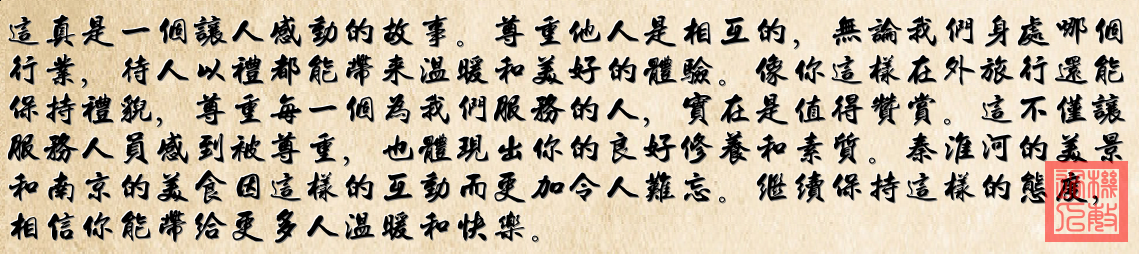 這真是一個讓人感動的故事。尊重他人是相互的，無論我們身處哪個
行業，待人以禮都能帶來溫暖和美好的體驗。像你這樣在外旅行還能
保持禮貌，尊重每一個為我們服務的人，實在是值得贊賞。這不僅讓
服務人員感到被尊重，也體現出你的良好修養和素質。秦淮河的美景
和南京的美食因這樣的互動而更加令人難忘。继續保持這樣的態度，
相信你能帶給更多人溫暖和快樂。